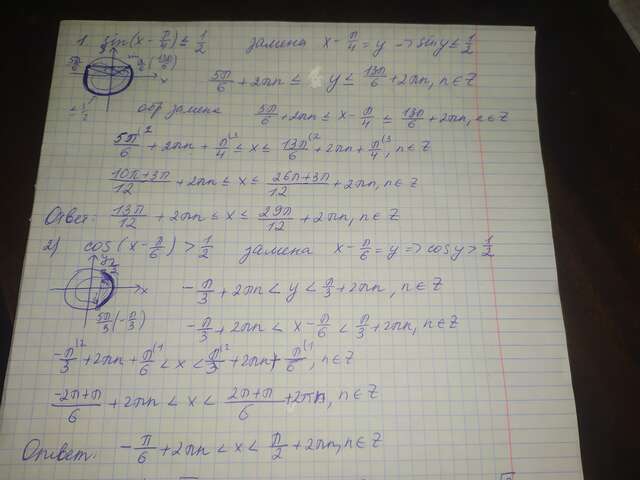 1. sin(x - π/4) ≤ 1/2 замена x - π/4 = y → sin y ≤ 1/2
5π/6 π/6 (13π/6) x
5π/6 + 2πn ≤ y ≤ 13π/6 + 2πn, n∈Z
обр замена 5π/6 + 2πn ≤ x - π/4 ≤ 13π/6 + 2πn, n∈Z
5π/6 + 2πn + π/4 ≤ x ≤ 13π/6 + 2πn + π/4, n∈Z
10π+3π/12 + 2πn ≤ x ≤ 26π+3π/12 + 2πn, n∈Z
Ответ: 13π/12 + 2πn ≤ x ≤ 29π/12 + 2πn, n∈Z
2) cos(x - π/6) > 1/2 замена x - π/6 = y => cos y > 1/2
x
-π/3 + 2πn < y < π/3 + 2πn, n∈Z
5π/3 (-π/3)
-π/3 + 2πn < x - π/6 < π/3 + 2πn, n∈Z
-π/3 + 2πn + π/6 < x < π/3 + 2πn + π/6, n∈Z
-2π+π/6 + 2πn < x < 2π+π/6 + 2πn, n∈Z
Ответ: -π/6 + 2πn < x < π/2 + 2πn, n∈Z